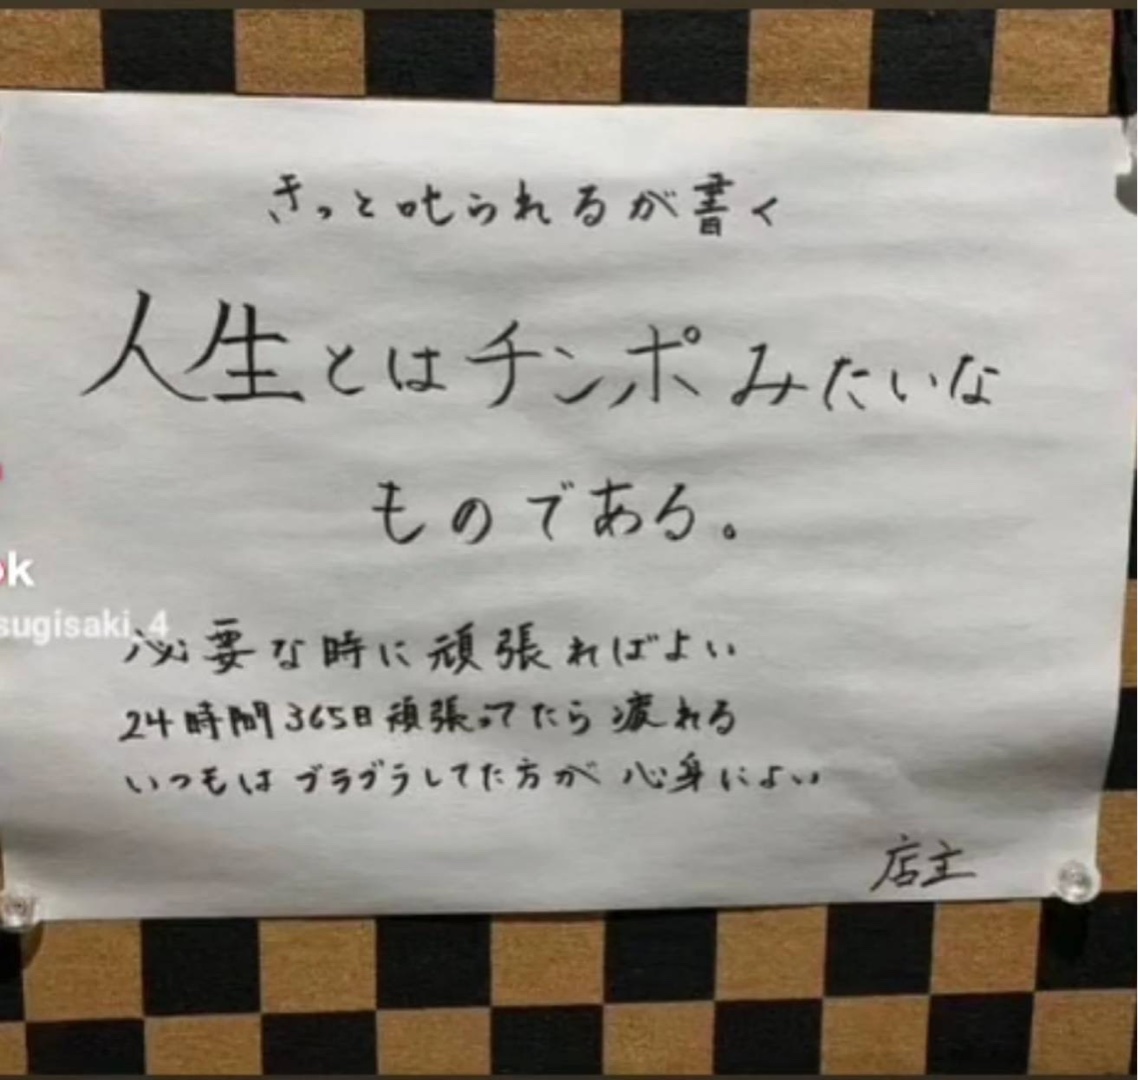 きっと叱られるが書く
人生とはチンポみたいな
ものである。
k
sugisaki_4
必要な時に頑張ればよい
24時間365日頑張ってたら疲れる
いつもはブラブラしてた方が心身によい
店主